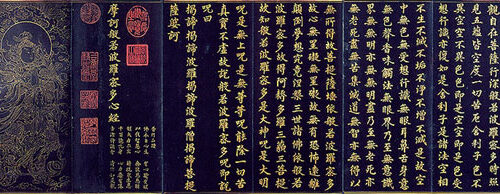 在菩薩行深般若波羅蜜多時照見
五蘊皆空度一切苦厄舍利子色不
異空空不異色色即是空空即是色受
想行識亦復如是舍利子是諸法空相
不生不滅不垢不淨不增不減是故空
中無色無受想行識無眼耳鼻舌身意
無色聲香味觸法無眼界乃至無意識
界無無明亦無無明盡乃至無老死亦
無老死盡無苦集滅道無智亦無得以
無所得故菩提薩埵依般若波羅蜜多
故心無罣礙無罣礙故無有恐怖遠離
顛倒夢想究竟涅槃三世諸佛依般若
波羅蜜多故得阿耨多羅三藐三菩提
故知般若波羅蜜多是大神呪是大明
呪是無上呪是無等等呪能除一切苦
真實不虛故說般若波羅蜜多呪即說
呪曰
揭諦揭諦波羅揭諦波羅僧揭諦菩提
薩婆訶
摩訶般若波羅蜜多心經